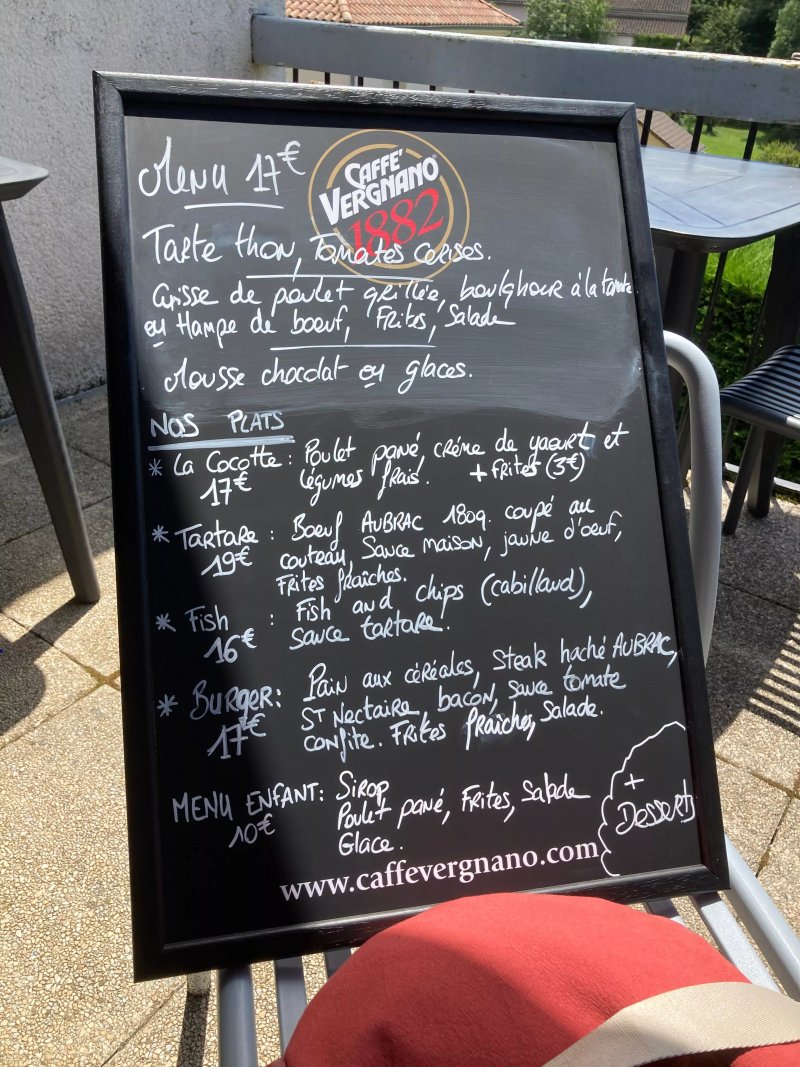 Menu 17€
CAFFÈ
VERGNANO
1882
Tarte thon, Tomates cerises.
Cuisse de poulet grillée, boulghour à la tomate
ou Hampe de boeuf, Frites, Salade
Mousse chocolat ou glaces.
NOS PLATS
* La Cocotte : Poulet pané, crème de yaourt et
17€ légumes frais. + FRITES (3€)
* TARTARE : Boeuf AUBRAC 180g. coupé au
19€ couteau, Sauce maison, jaune d'oeuf,
FRITES fraîches.
* Fish : Fish and chips (cabillaud),
16€ sauce tartare.
* BURGER : Pain aux céréales, Steak haché AUBRAC,
17€ ST Nectaire, bacon, sauce tomate
confite. FRITES fraîches, Salade.
MENU ENFANT : Sirop
10€ Poulet pané, Frites, Salade
Glace.
+
Desserts
www.caffevergnano.com